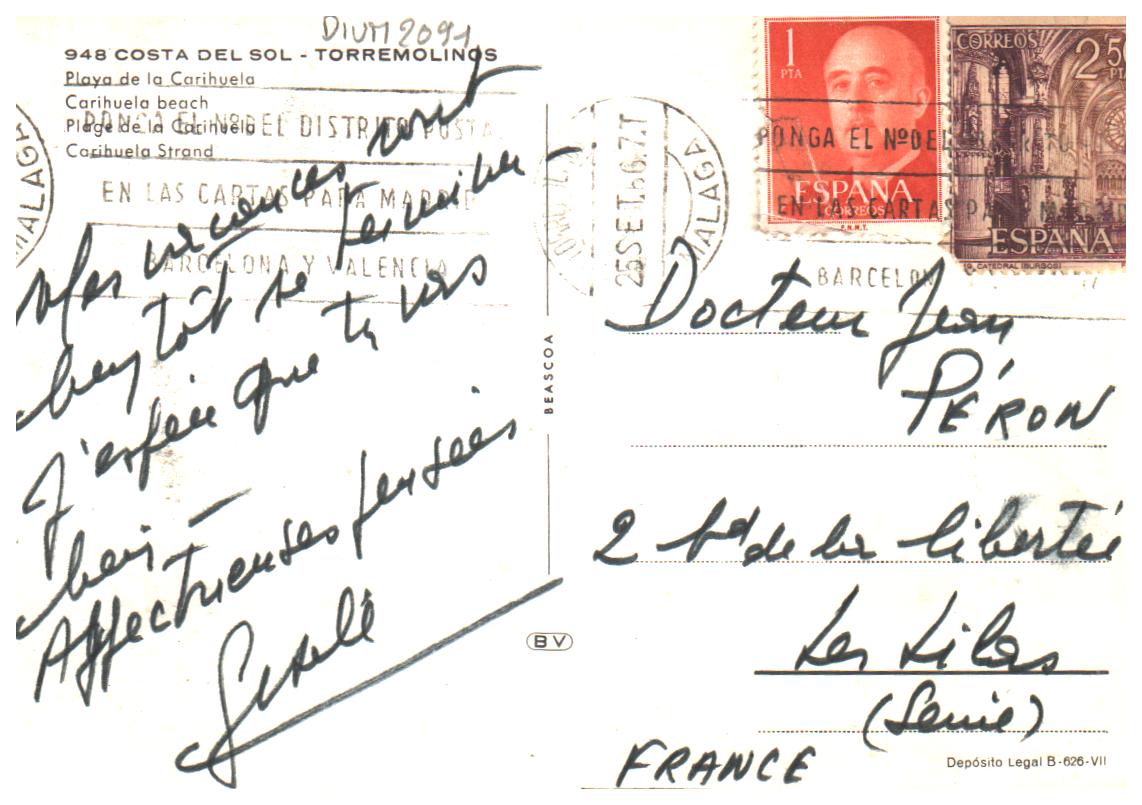 DIVM2091
948 COSTA DEL SOL - TORREMOLINOS
Playa de la Carihuela
Carihuela beach
Plage de la Carihuela
Carihuela Strand
PONGA EL Nº DEL DISTRITO POSTAL
EN LAS CARTAS PARA MADRID
BARCELONA Y VALENCIA
MALAGA
Mes vacances vont
bientôt se terminer
J'espère que tu vas
bien -
Affectueuses pensées
Gisèle
BEASCOA
BV
25 SET. 66. 7.T
MALAGA
1
PTA
ESPAÑA
CORREOS
F.N.M.T.
CORREOS
2'50
PTA
ESPAÑA
CATEDRAL (BURGOS)
PONGA EL Nº DEL
EN LAS CARTAS PARA MADRID
BARCELON
Docteur Jean
PÉRON
2 bd de la liberté
Les Lilas
(Seine)
FRANCE
Depósito Legal B-626-VII